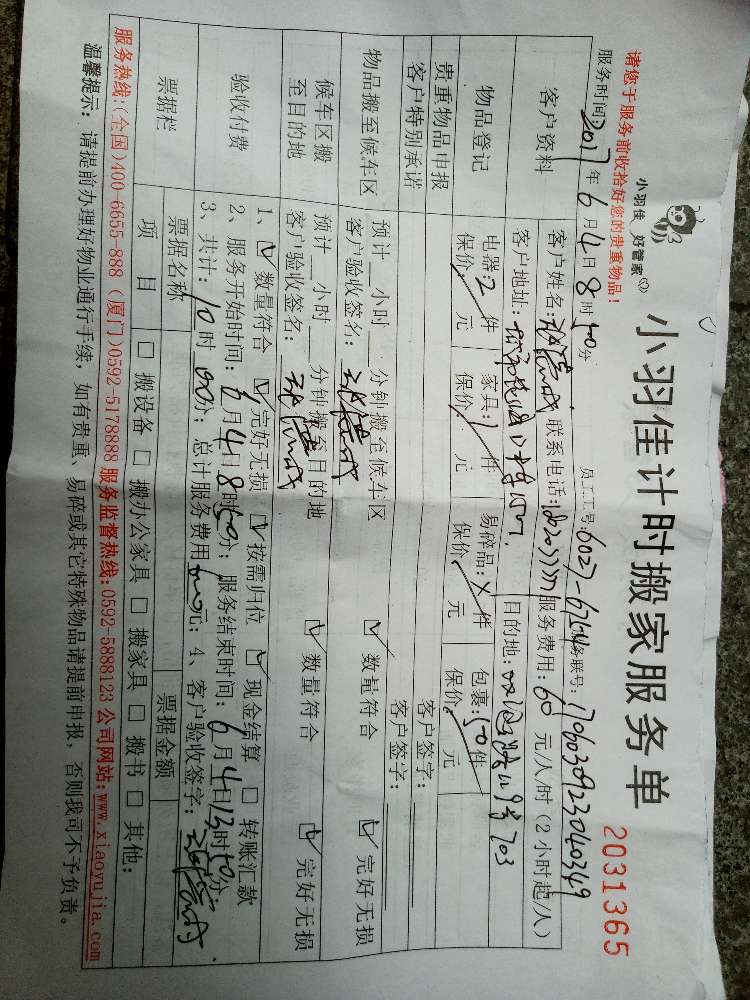 小羽佳 好管家
小羽佳计时搬家服务单
2031365
请您于服务前收拾好您的贵重物品！
员工工号：6027- 务联号：1706030923040349
服务时间：2017年6月4日8时50分
客户资料
客户姓名： 联系电话： 服务费用：60元/人/时(2小时起/人)
客户地址： 目的地： 703
物品登记
电器：2件 家具：1件 易碎品：X件 包裹：50件
保价/元 保价/元 保价/元 保价/元
贵重物品申报 客户签字：
客户特别承诺 客户签字：
物品搬至候车区
预计__小时__分钟搬至候车区 ☑数量符合 ☑完好无损
客户验收签名：
候车区搬至目的地
预计__小时__分钟搬至目的地 ☑数量符合 ☑完好无损
客户验收签名：
验收付费
1、☑数量符合 ☑完好无损 ☑按需归位 ☑现金结算 □转账汇款
2、服务开始时间：6月4日8时50分；服务结束时间：6月4日13时50分；
3、共计：10时00分；总计服务费用 元；4、客户验收签字：
票据栏
票据名称 票据金额
项目 □搬设备 □搬办公家具 □搬家具 □搬书 □其他：
服务热线：(全国)400-6655-888 (厦门)0592-5178888 服务监督热线：0592-5888123 公司网站：www.xiaoyujia.com
温馨提示：请提前办理好物业通行手续，如有贵重、易碎或其它特殊物品请提前申报，否则我司不予负责。